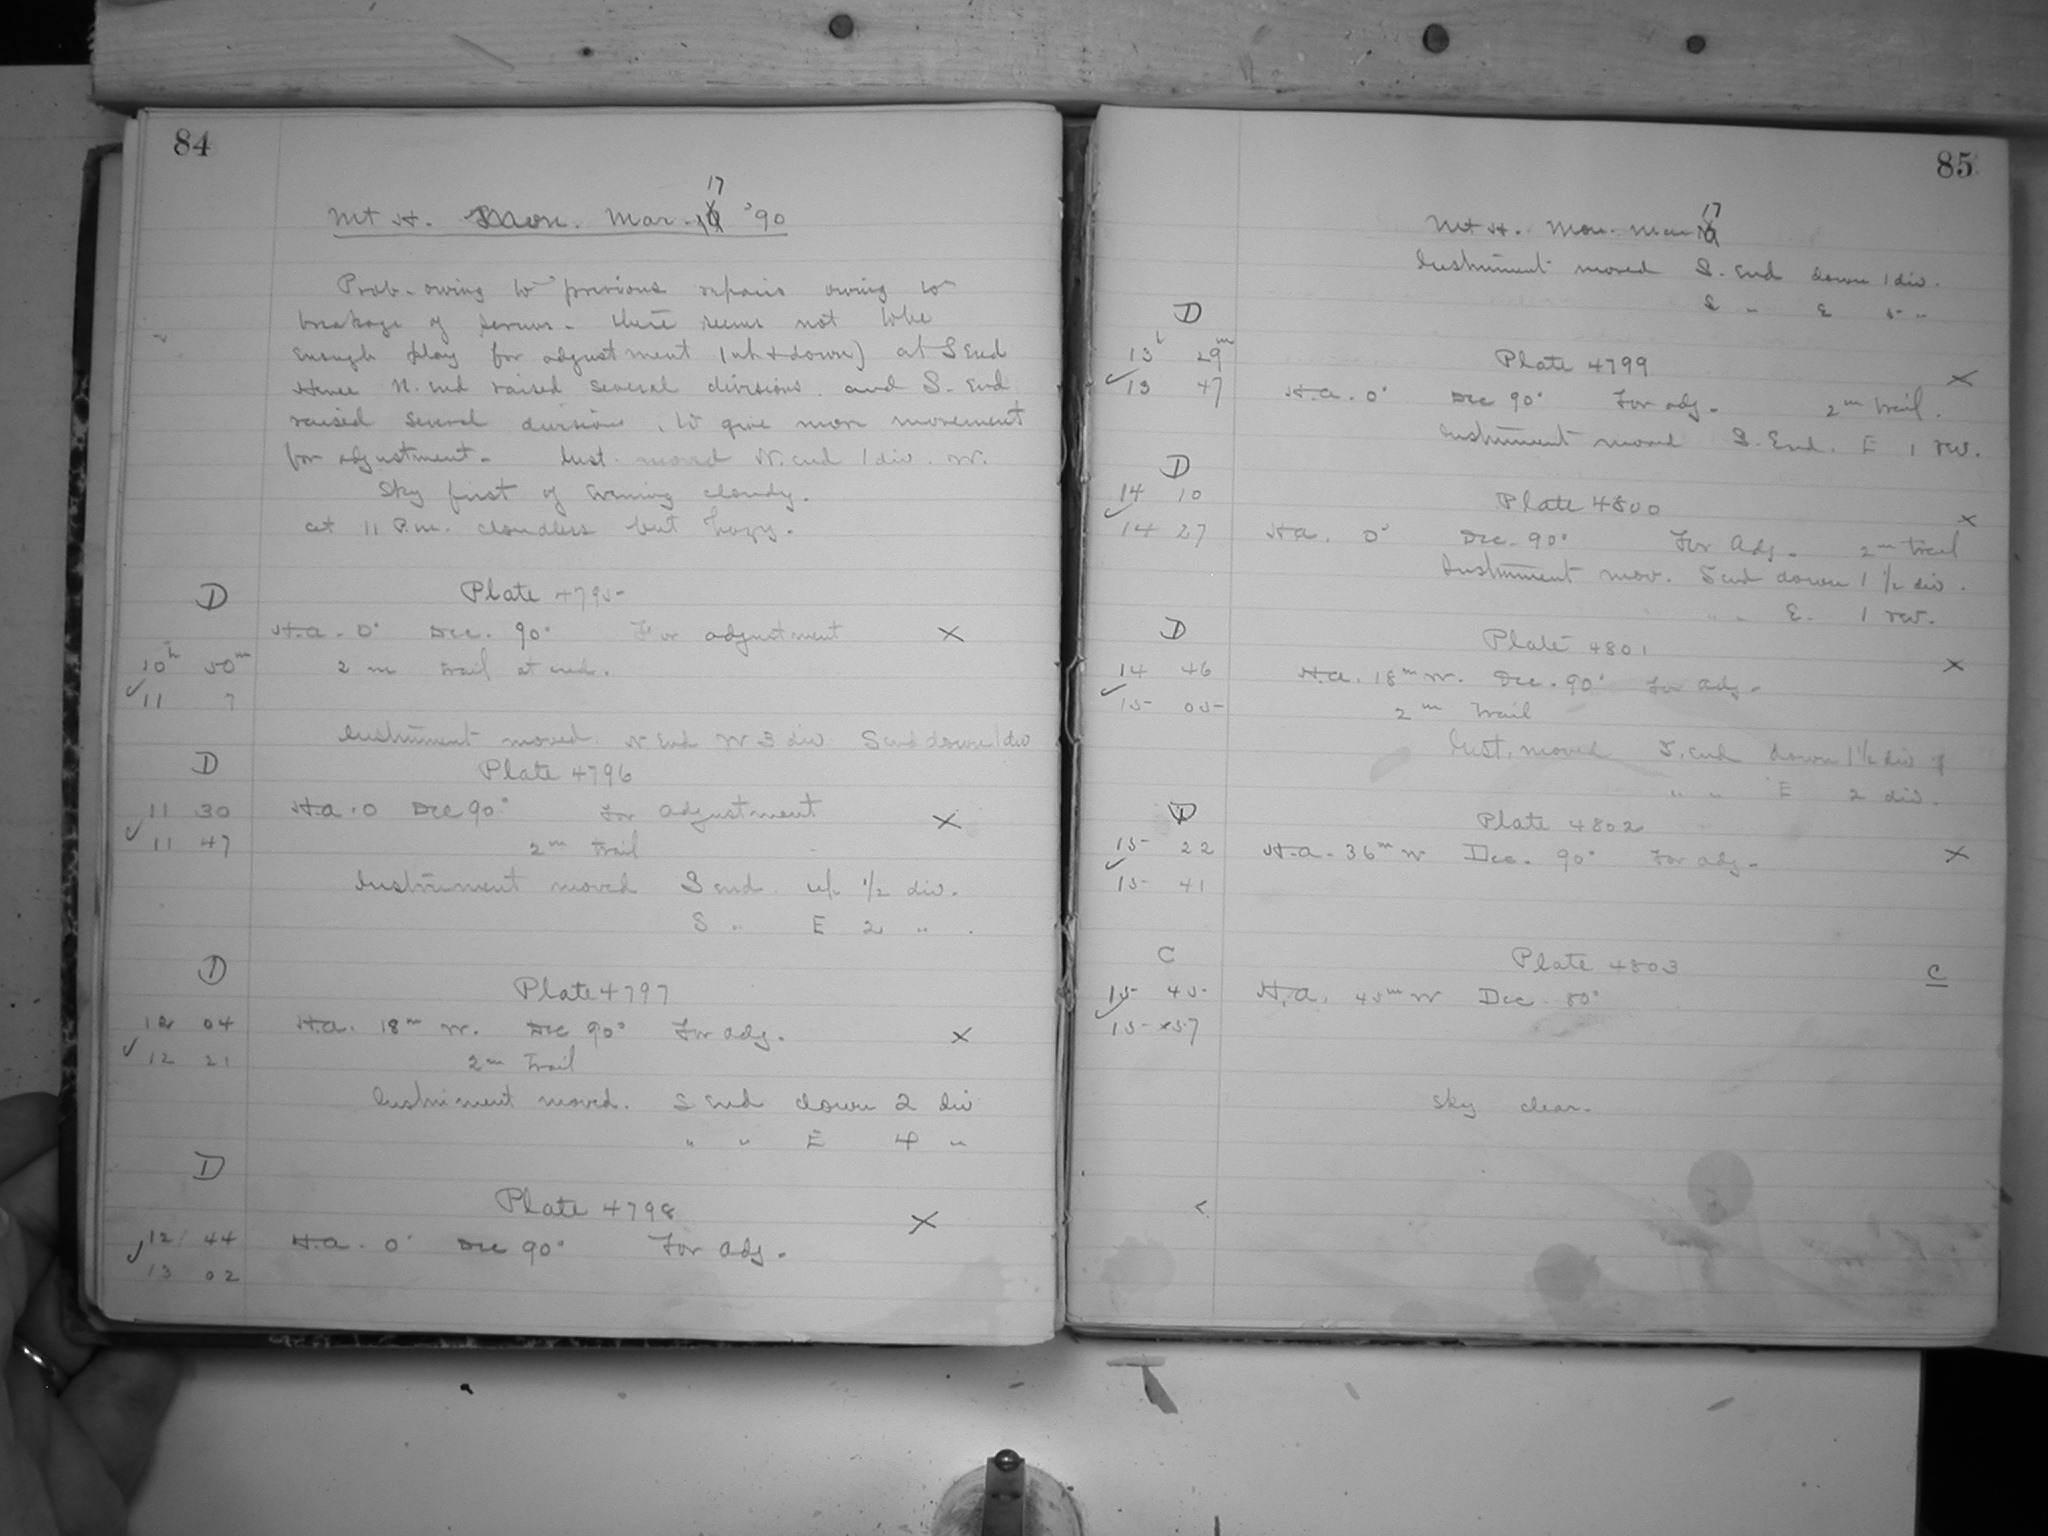 84
17
Mt H. Mon. Mar. '90
Prob. owing to previous repairs owing to
breakage of screws - there seems not to be
enough play for adjustment (up & down) at S End
Hence N. end raised several divisions. and S. end
raised several divisions, to give more movement
for adjustment - Inst. moved N. end 1 div. W.
Sky first of evening cloudy.
at 11 P.m. cloudless but hazy.
D
Plate 4795
H.a. 0° Dec. 90° For adjustment X
10h 50m 2 m trail at end.
✓ 11 7
Instrument moved N End W 3 div S end down 1 div
D
Plate 4796
11 30 H.a. 0 Dec 90° For adjustment X
✓ 11 47 2m trail
Instrument moved S end. up 1/2 div.
S " E 2 " .
D
Plate 4797
12 04 H.a. 18m W. Dec 90° For adj. X
✓ 12 21 2m Trail
Instrument moved. S End down 2 div
" " E 4 "
D
Plate 4798 X
✓ 12 44 H.a. 0° Dec 90° For adj.
13 02
85
17
Mt H. Mon. Mar
Instrument moved S. end down 1 div.
S " E 5 "
D
13h 29m Plate 4799 X
✓ 13 47 H.a. 0° Dec 90° For adj. 2m trail.
Instrument moved S. End. E 1 rev.
D
14 10 Plate 4800 X
✓ 14 27 H.a. 0° Dec. 90° For Adj. 2m trail
Instrument mov. S end down 1 1/2 div.
" " E. 1 rev.
D
Plate 4801 X
14 46 H.a. 18m W. Dec. 90° For adj.
✓ 15 05 2m trail
Inst. moved S. end down 1 1/2 div
" " E 2 div.
D
Plate 4802
15 22 H.a. 36m W Dec. 90° For adj. X
✓ 15 41
C
Plate 4803 C
15 45 H.a. 45m W Dec. 80°
✓ 15 57
Sky clear.